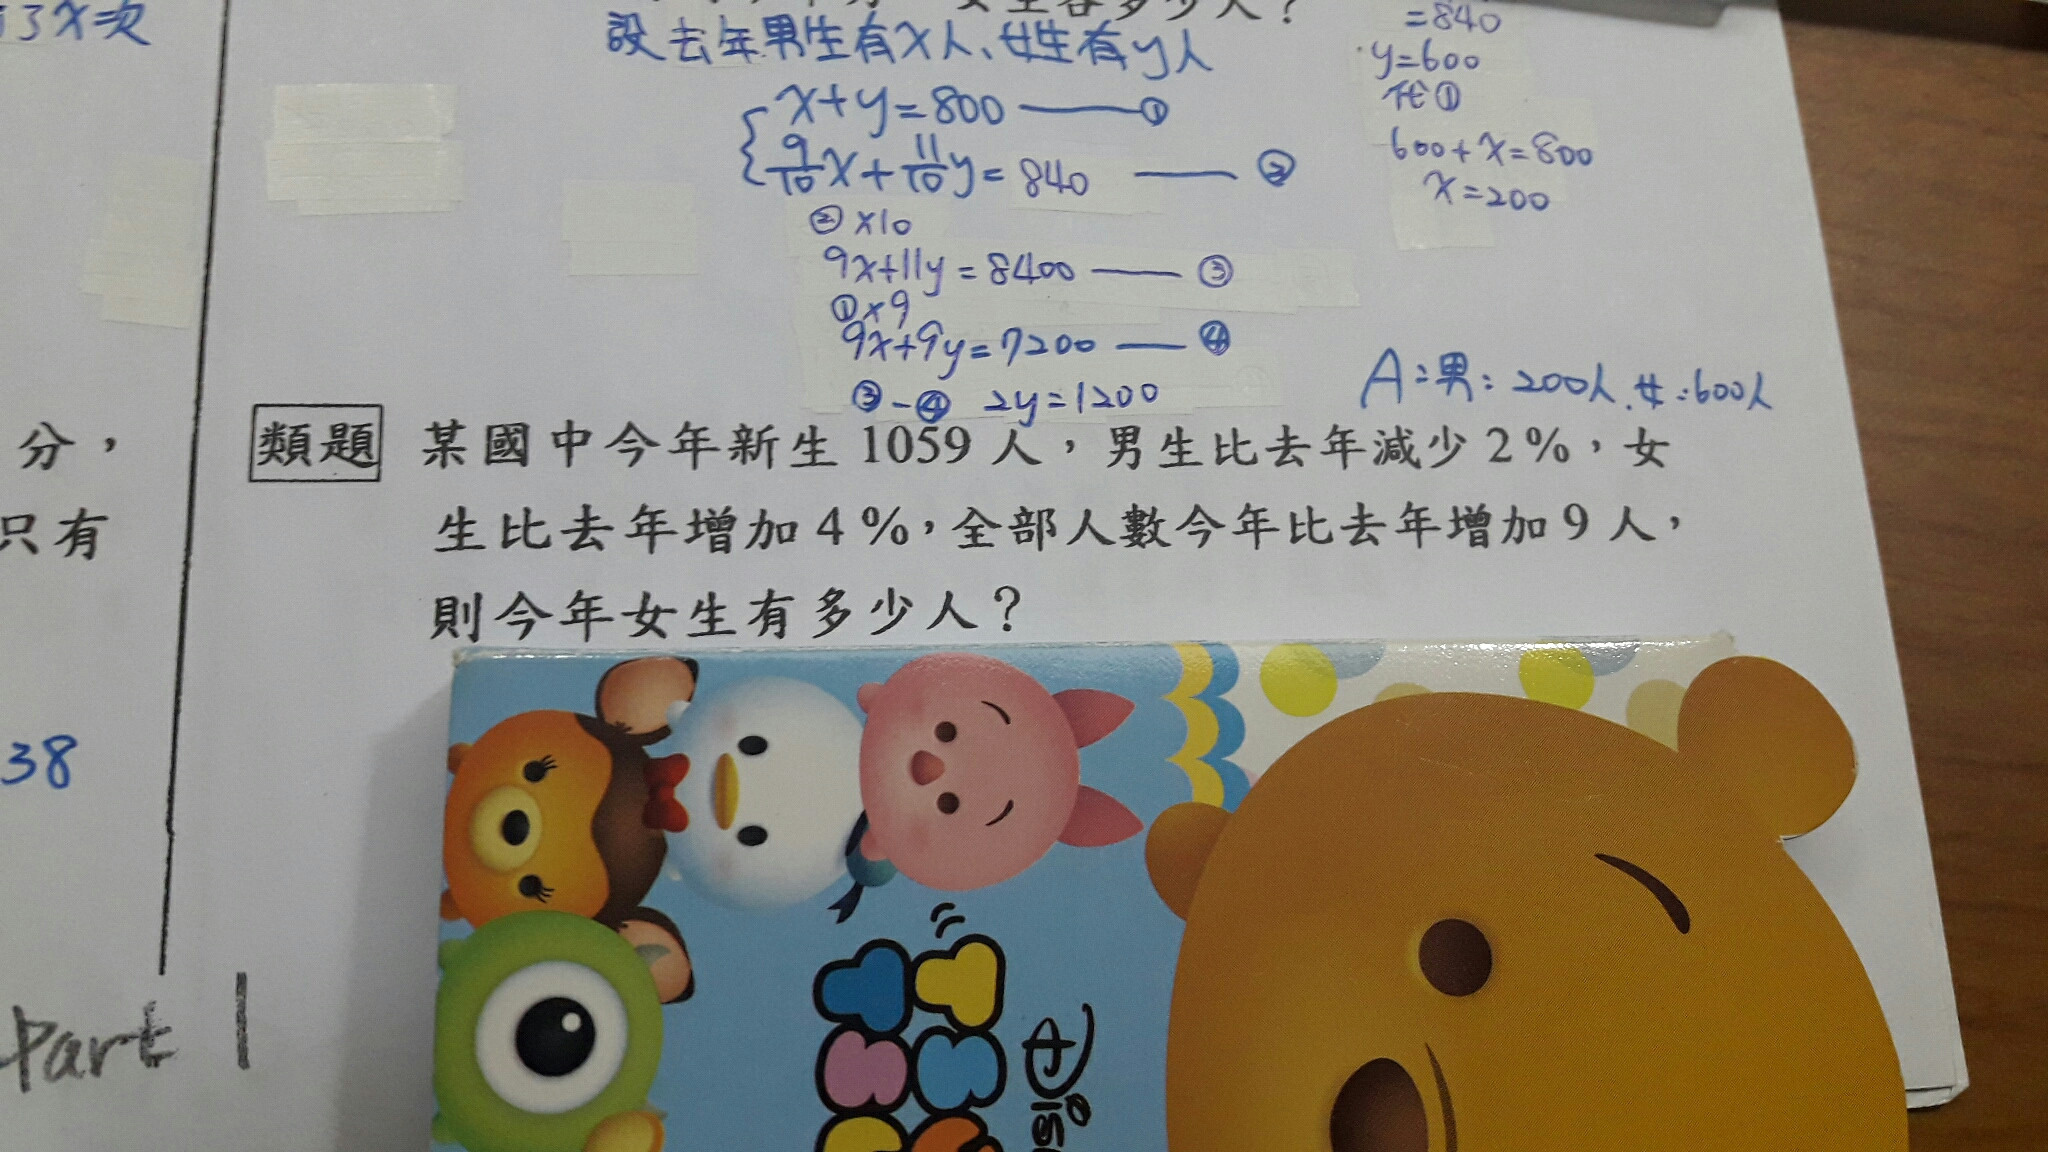 了x次
女生各多少人?
設去年男生有x人、女生有y人
x+y=800 ——①
9/10x+11/10y=840 ——②
②×10
9x+11y=8400 ——③
①×9
9x+9y=7200 ——④
③-④ 2y=1200
=840
y=600
代①
600+x=800
x=200
A:男:200人.女:600人
分,
只有
38
Part 1
類題 某國中今年新生1059人,男生比去年減少2%,女
生比去年增加4%,全部人數今年比去年增加9人,
則今年女生有多少人?